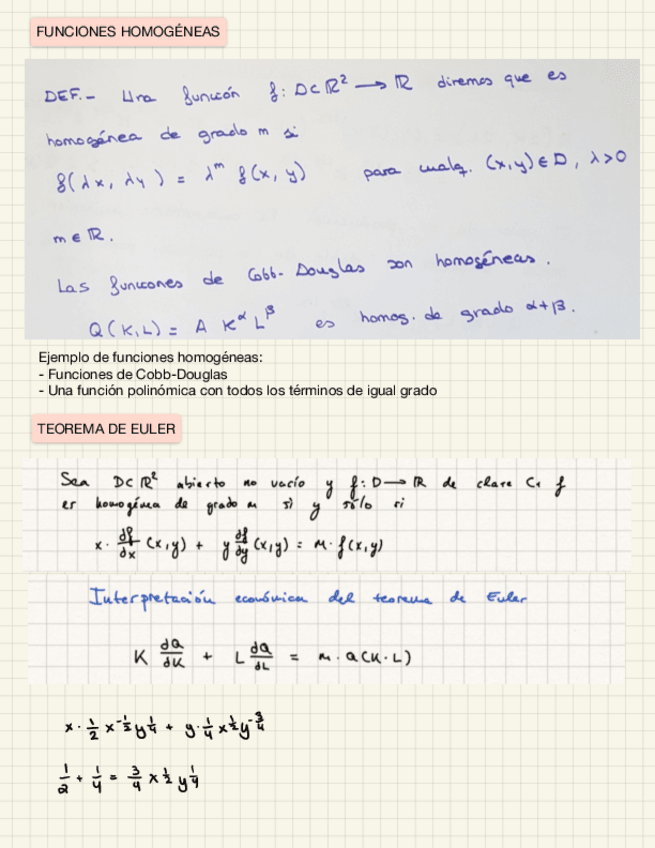 FUNCIONES HOMOGÉNEAS
DEF.- Una función f: D⊂ℝ² → ℝ diremos que es
homogénea de grado m si
f(λx, λy) = λ^m f(x, y) para cualq. (x,y) ∈ D, λ>0
m ∈ ℝ.
Las funciones de Cobb-Douglas son homogéneas.
Q(K,L) = A K^α L^β es homog. de grado α+β.
Ejemplo de funciones homogéneas:
- Funciones de Cobb-Douglas
- Una función polinómica con todos los términos de igual grado
TEOREMA DE EULER
Sea D⊂ℝ² abierto no vacío y f: D→ℝ de clase C₁ f
es homogénea de grado m si y sólo si
x · df/dx (x,y) + y df/dy (x,y) = m · f(x,y)
Interpretación económica del teorema de Euler
K dQ/dK + L dQ/dL = m · Q(K·L)
x · 1/2 x^-1/2 y^1/4 + y · 1/4 x^1/2 y^-3/4
1/2 + 1/4 = 3/4 x^1/2 y^1/4